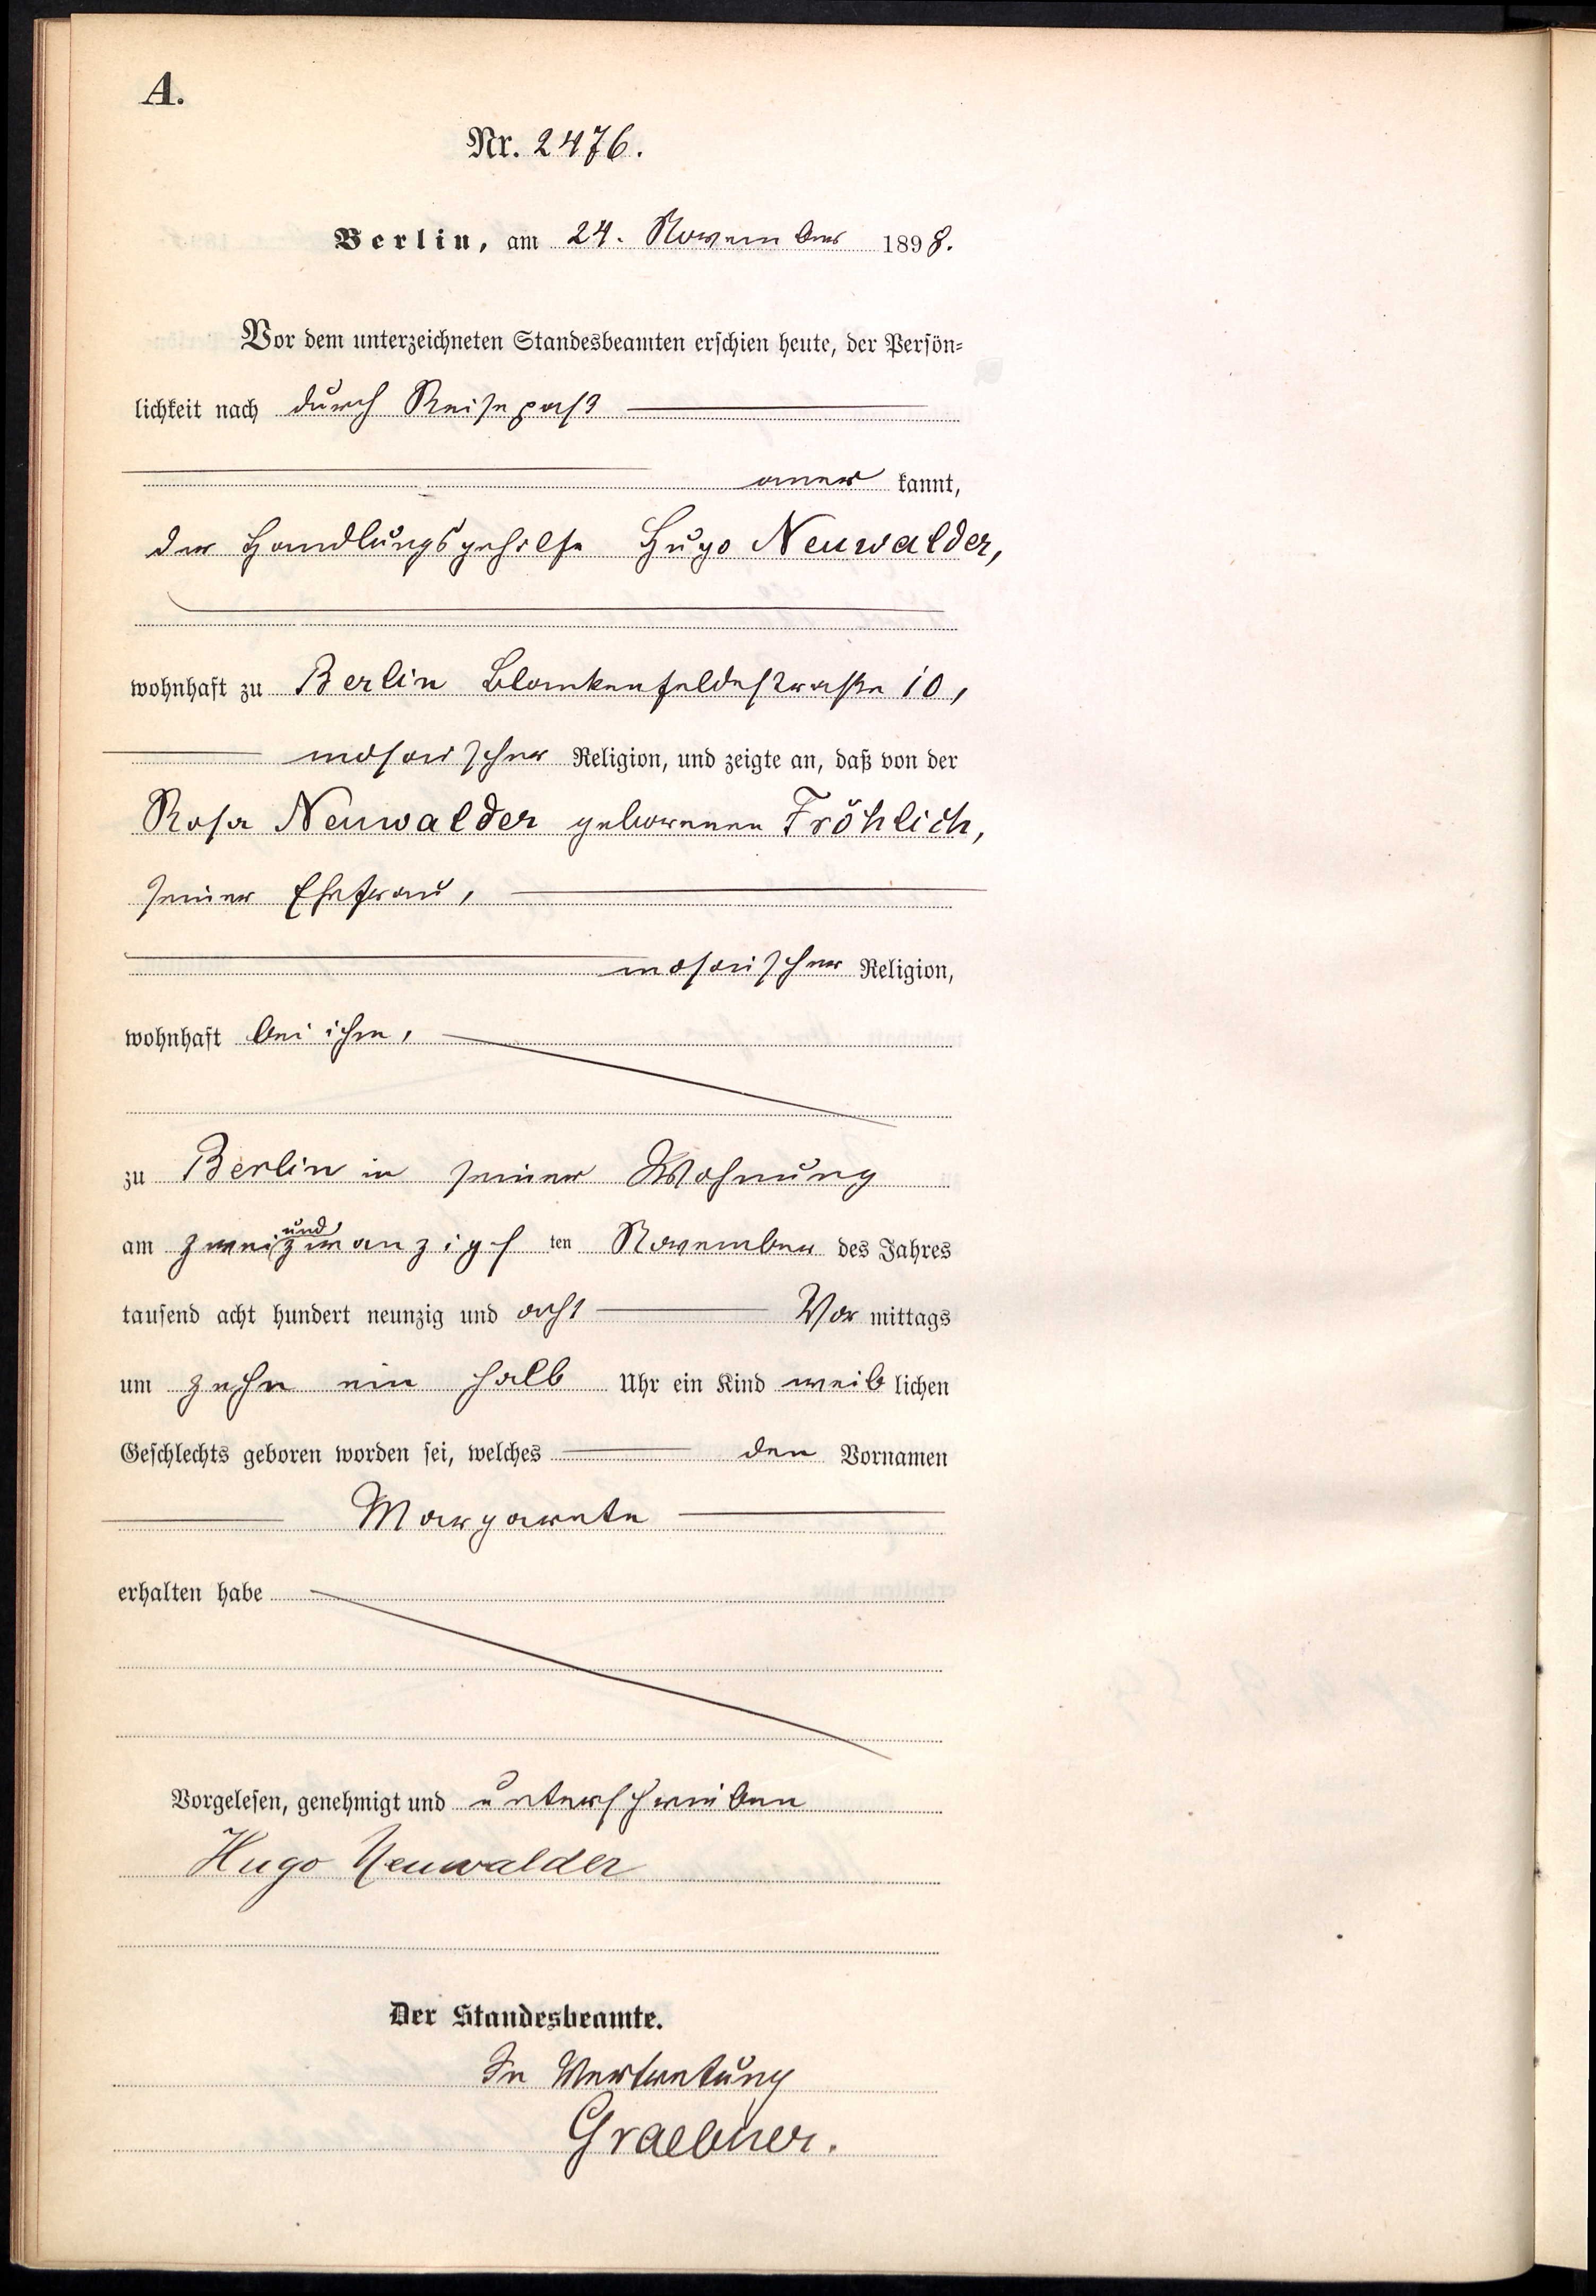 A.
Nr. 2476.
Berlin, am 24. November 1898.
Vor dem unterzeichneten Standesbeamten erschien heute, der Persön-
lichkeit nach durch Reisepaß
aner kannt,
der Handlungsgehilfe Hugo Neuwalder,
wohnhaft zu Berlin Blankenfeldestraße 10,
mosaischer Religion, und zeigte an, daß von der
Rosa Neuwalder geborenen Fröhlich,
seiner Ehefrau,
mosaischer Religion,
wohnhaft bei ihm,
zu Berlin in seiner Wohnung
am zweiundzwanzigs ten November des Jahres
tausend acht hundert neunzig und acht Vor mittags
um zehn ein halb Uhr ein Kind weib lichen
Geschlechts geboren worden sei, welches den Vornamen
Margarete
erhalten habe
Vorgelesen, genehmigt und unterschrieben
Hugo Neuwalder
Der Standesbeamte.
In Vertretung
Graebner.